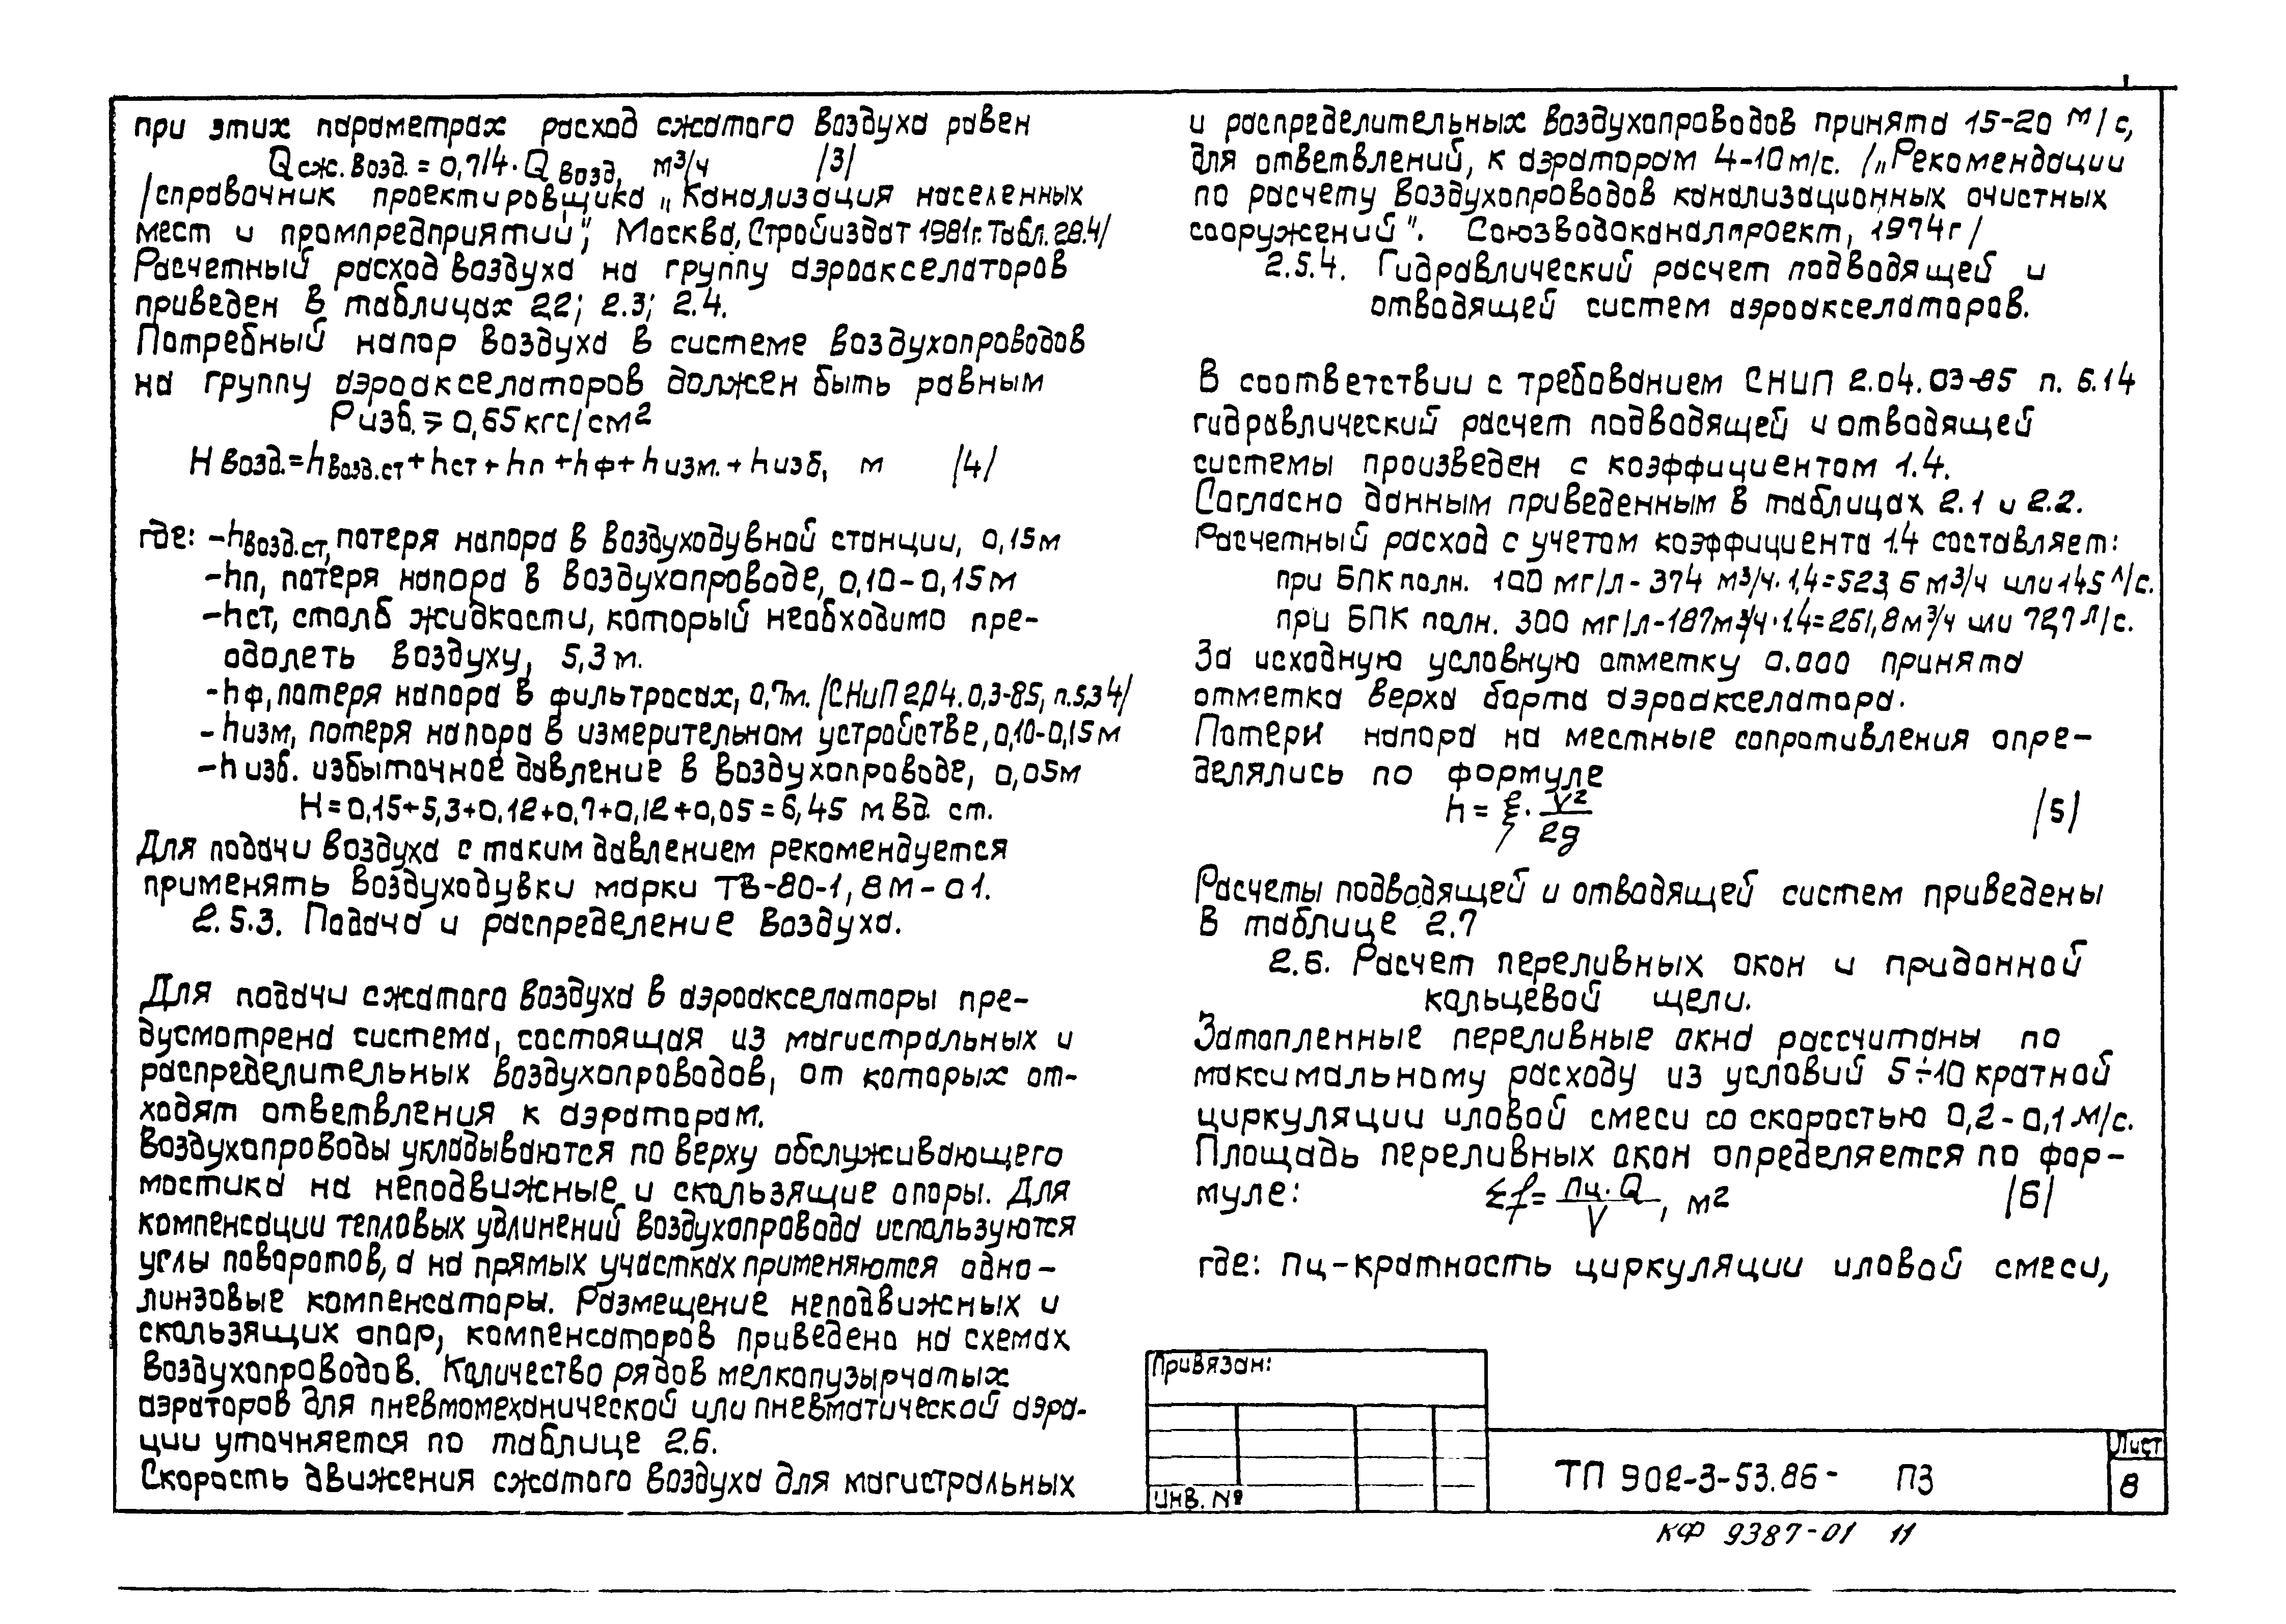 при этих параметрах расход сжатого воздуха равен
Qсж.возд. = 0,714·Qвозд, м³/ч /3/
/справочник проектировщика „Канализация населенных
мест и промпредприятий", Москва, Стройиздат 1981г. Табл. 28.4/
Расчетный расход воздуха на группу аэроакселаторов
приведен в таблицах 2.2; 2.3; 2.4.
Потребный напор воздуха в системе воздухопроводов
на группу аэроакселаторов должен быть равным
Ризб. ⩾ 0,65 кгс/см²
Н возд.=hвозд.ст+hст+hп+hф+hизм.+hизб, м /4/
где: -hвозд.ст, потеря напора в воздуходувной станции, 0,15м
-hп, потеря напора в воздухопроводе, 0,10-0,15м
-hст, столб жидкости, который необходимо пре-
одолеть воздуху, 5,3м.
-hф, потеря напора в фильтросах, 0,7м. /СНиП 2.04.0,3-85, п.5.34/
-hизм, потеря напора в измерительном устройстве, 0,10-0,15м
-hизб. избыточное давление в воздухопроводе, 0,05м
Н=0,15+5,3+0,12+0,7+0,12+0,05=6,45 м.вд. ст.
Для подачи воздуха с таким давлением рекомендуется
применять воздуходувки марки ТВ-80-1,8М-01.
2.5.3. Подача и распределение воздуха.
Для подачи сжатого воздуха в аэроакселаторы пре-
дусмотрена система, состоящая из магистральных и
распределительных воздухопроводов, от которых от-
ходят ответвления к аэраторам.
Воздухопроводы укладываются по верху обслуживающего
мостика на неподвижные и скользящие опоры. Для
компенсации тепловых удлинений воздухопровода используются
углы поворотов, а на прямых участках применяются одно-
линзовые компенсаторы. Размещение неподвижных и
скользящих опор, компенсаторов приведено на схемах
воздухопроводов. Количество рядов мелкопузырчатых
аэраторов для пневмомеханической или пневматической аэра-
ции уточняется по таблице 2.6.
Скорость движения сжатого воздуха для магистральных
и распределительных воздухопроводов принята 15-20 м/с,
для ответвлений, к аэраторам 4-10м/с. /„Рекомендации
по расчету воздухопроводов канализационных очистных
сооружений". Союзводоканалпроект, 1974г/
2.5.4. Гидравлический расчет подводящей и
отводящей систем аэроакселаторов.
В соответствии с требованием СНиП 2.04.03-85 п. 6.14
гидравлический расчет подводящей и отводящей
системы произведен с коэффициентом 1.4.
Согласно данным приведенным в таблицах 2.1 и 2.2.
Расчетный расход с учетом коэффициента 1.4 составляет:
при БПК полн. 100 мг/л-374 м³/ч·1,4=523,6 м³/ч или 145 л/с.
при БПК полн. 300 мг/л-187м³/ч·1.4=261,8м³/ч или 72,7 л/с.
За исходную условную отметку 0.000 принята
отметка верха борта аэроакселатора.
Потери напора на местные сопротивления опре-
делялись по формуле
h = ξ · V²/2g /5/
Расчеты подводящей и отводящей систем приведены
в таблице 2.7
2.6. Расчет переливных окон и придонной
кольцевой щели.
Затопленные переливные окна рассчитаны по
максимальному расходу из условий 5÷10 кратной
циркуляции иловой смеси со скоростью 0,2-0,1 м/с.
Площадь переливных окон определяется по фор-
муле: Σf = пц·Q/V, м² /6/
где: пц-кратность циркуляции иловой смеси,
Привязан:
Инв. №
ТП 902-3-53.86- ПЗ
Лист
8
КФ 9387-01 11